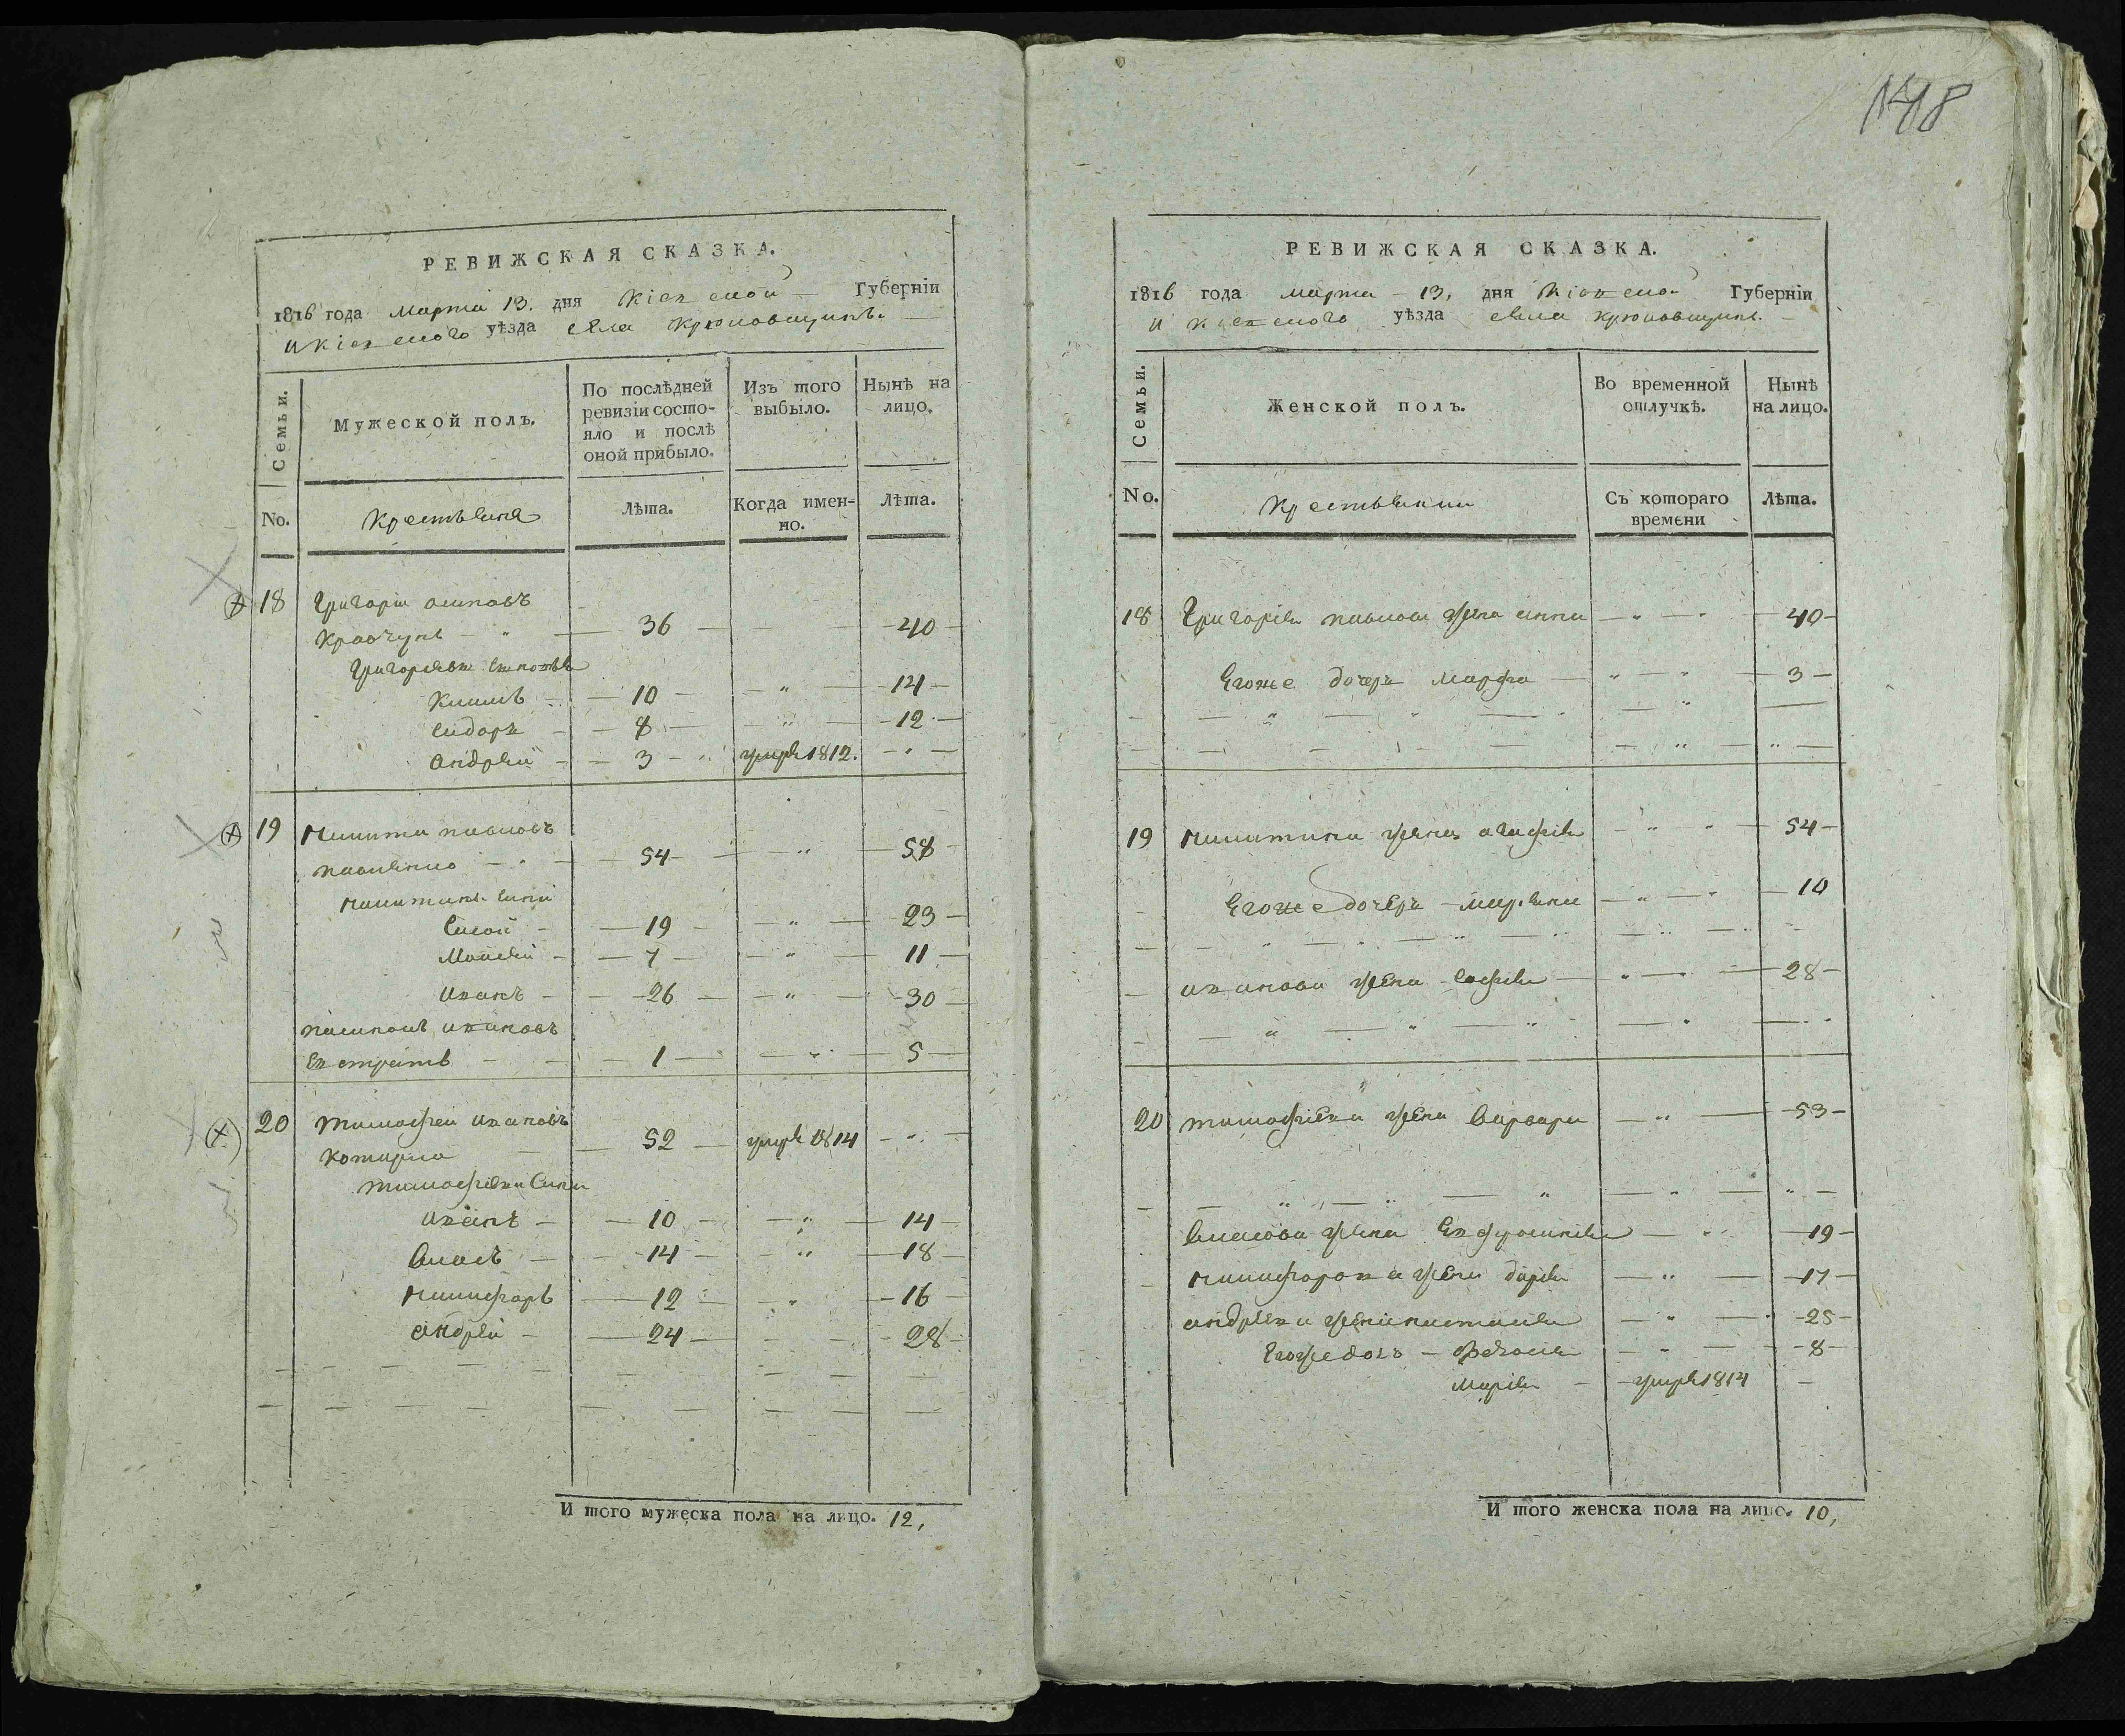 1418
РЕВИЖСКАЯ СКАЗКА.
1816 года марта 13. дня Кіевской Губерніи
и Кіевского уѣзда села Крюковщины.
Семьи.
Мужеской полъ.
По послѣдней ревизіи состо-
яло и послѣ оной прибыло.
Изъ того выбыло.
Нынѣ на лицо.
No.
Крестьяня
Лѣта.
Когда имен-
но.
Лѣта.
18 Григорій
Кравчунъ — 36 — 40
Григорьевы
Климъ — 10 — " — 14
Сидоръ — 8 — " — 12
Андрей — 3 — умре 1812.
19 Никита Павловъ
Павленко — 54 — " — 58
Никитины сыни
Сысой — 19 — " — 23
Моисей — 7 — " — 11
Иванъ — 26 — " — 30
Ивановъ
Евстратъ — 1 — " — 5
20 Тимофей Ивановъ
52 — умре 1814 — "
Тимофеева сыни
Иванъ — 10 — " — 14
Власъ — 14 — " — 18
Никифоръ — 12 — " — 16
Андрей — 24 — 28
И того мужеска пола на лицо. 12,
РЕВИЖСКАЯ СКАЗКА.
1816 года марта 13, дня Кіевско- Губерніи
и Кіевского уѣзда села Крюковщины.
Семьи.
Женской полъ.
Во временной отлучкѣ.
Нынѣ на лицо.
No.
Крестьянки
Съ котораго времени
Лѣта.
18 Григорія жена Анна — " — 40
Егоже дочерь Марфа — " — 3
19 Никитина жена Агафія — " — 54
Егоже дочерь — " — 10
Иванова жена Софія — " — 28
20 Тимофѣева жена Варвара — " — 53
Власова жена Евфросинія — " — 19
Никифорова жена Дарія — " — 17
Андрева жена Настасія — " — 25
Егоже доч — " — 8
Марія — умре 1814
И того женска пола на лицо. 10,